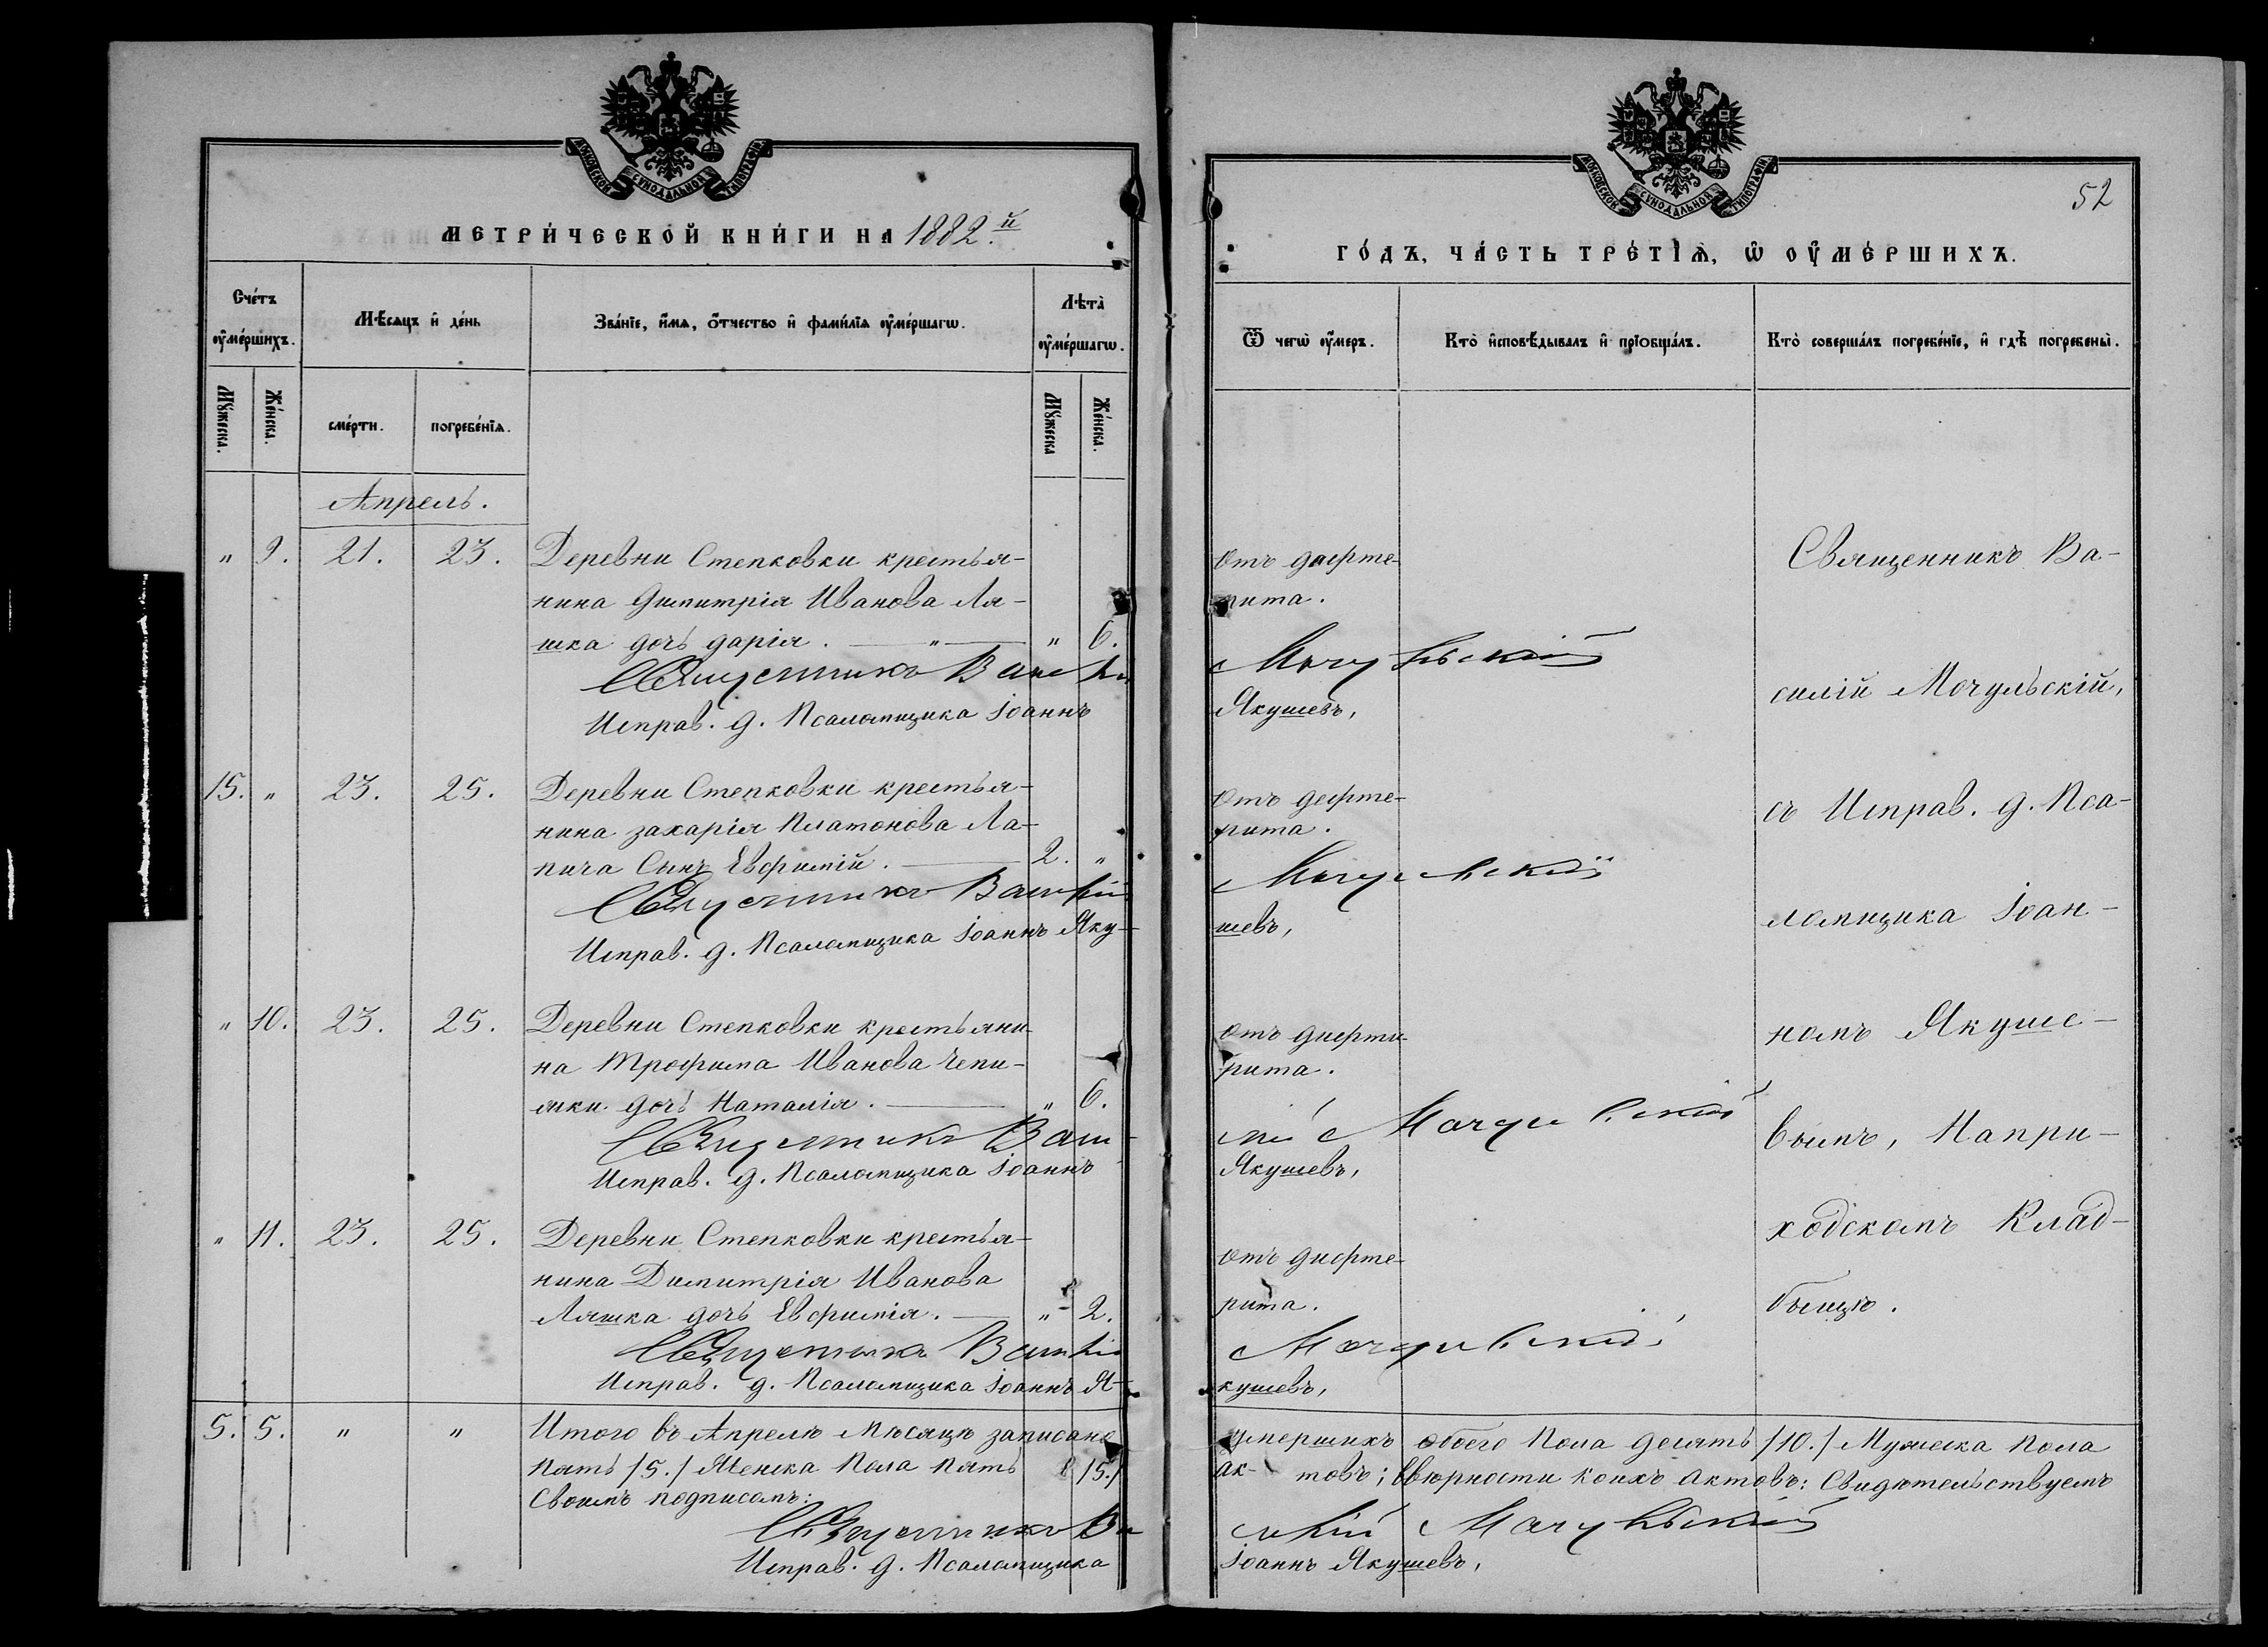 МОСКОВСКОЙ СѴНОДАЛЬНОЙ ТИПОГРАФІИ
МЕТРИ́ЧЕСКОЙ КНИ́ГИ НА 1882.й
Сче́тъ оу҆ме́ршихъ.
Мѣ́сяцъ и҆ де́нь
Зва́нїе, и҆́мѧ, ѻ҆́тчество и҆ фами́лїѧ оу҆ме́ршагѡ.
Лѣ́та оу҆ме́ршагѡ.
Мꙋ́жеска.
Же́нска.
сме́рти.
погребе́нїѧ.
Мꙋ́жеска
Же́нска.
Апрель.
" 9. 21. 23. Деревни Степковки крестья-
нина Димитрія Иванова Ля-
шка дочь дарія. — " — " 6.
Священникъ Васи
Исправ. д. Псаломщика Іоаннъ
15. " 23. 25. Деревни Степковки крестья-
нина захарія Платонова Ла-
пича Сынъ Евфимій. — 2. "
Священникъ Василій
Исправ. д. Псаломщика Іоаннъ Яку-
" 10. 23. 25. Деревни Степковки крестьяни-
на Трофима Иванова Чепи-
жки дочь Наталія. — " 6.
Священникъ Васи-
Исправ. д. Псаломщика Іоаннъ
" 11. 23. 25. Деревни Степковки крестья-
нина Димитрія Иванова
Ляшка дочь Евфимія. — " 2.
Священникъ Василій
Исправ. д. Псаломщика Іоаннъ Я-
5. 5. " " Итого въ Апрелѣ Мѣсяцѣ записано
пять /5./ Женска Пола пять /5./
Своимъ подписомъ:
Священникъ Ва
Исправ. д. Псаломщика
МОСКОВСКОЙ СѴНОДАЛЬНОЙ ТИПОГРАФІИ
52
ГО́ДЪ, ЧА́СТЬ ТРЕ́ТЇѦ, Ѡ҆ ОУ҆МЕ́РШИХЪ.
Ѿ чегѡ̀ оу҆́меръ.
Кто̀ и҆сповѣ́дывалъ и҆ прїѻбща́лъ.
Кто̀ соверша́лъ погребе́нїе, и҆ гдѣ̀ погребены̀.
отъ дифте-
рита.
Мочульскій
Якушевъ,
отъ дефте-
рита.
Мочульскій
шевъ,
отъ дифти-
рита.
лій Мочульскій
Якушевъ,
отъ дифте-
рита.
Мочульскій
кушевъ,
Священникъ Ва-
силій Мочульскій,
съ Исправ. д. Пса-
ломщика Іоан-
номъ Якуше-
вымъ, Напри-
ходскомъ Клад-
бищѣ.
умершихъ обоего Пола десять /10./ Мужеска Пола
ак- товъ; Ввѣрности коихъ Актовъ: Свидѣтельствуемъ
силій Мочульскій
Іоаннъ Якушевъ,